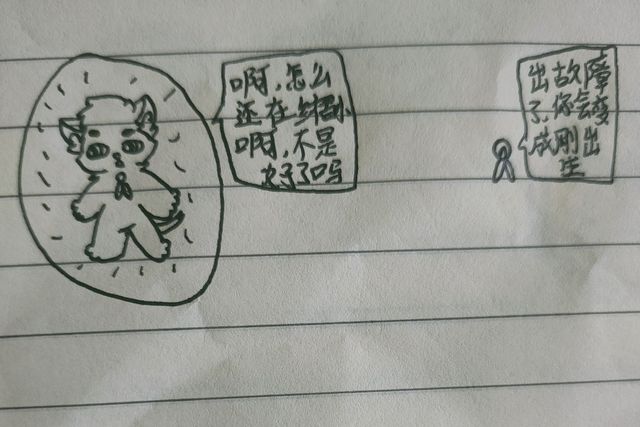 啊,怎么
还在缩小
啊,不是
好了吗
出故障
了,你会变
成刚出
生